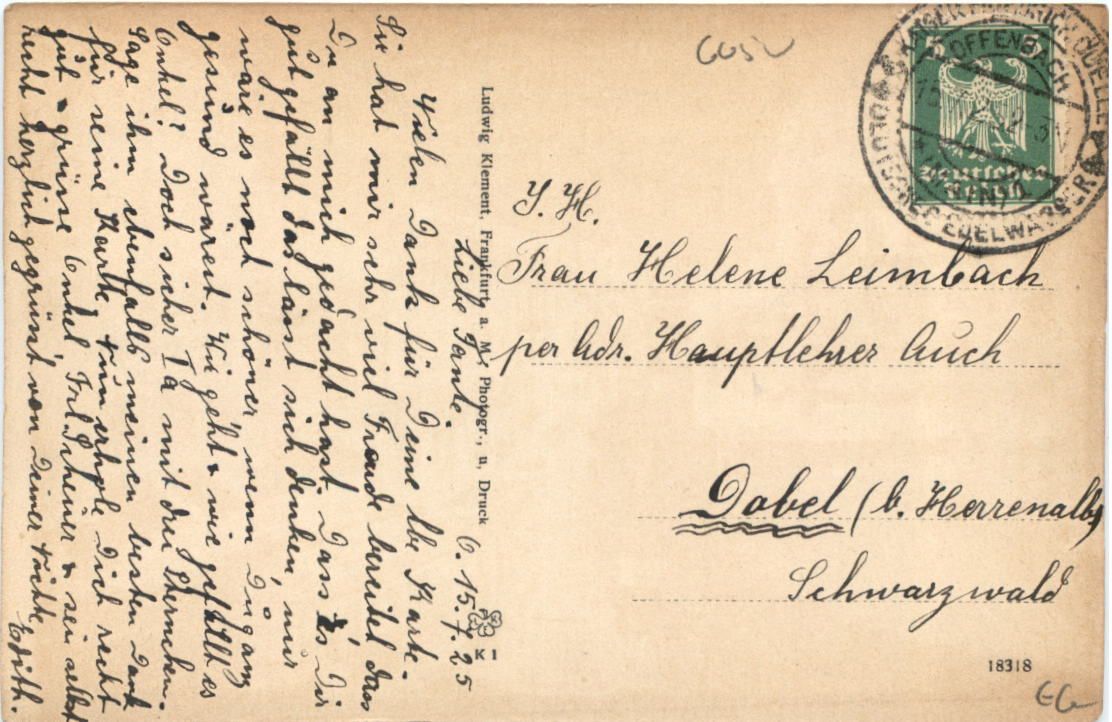 O. 15.7.25
Liebe Tante.
Vielen Dank für Deine lbe Karte.
Sie hat mir sehr viel Freude bereitet dass
Du an mich gedacht hast. Dass es Dir
gut gefällt das lässt sich denken, nur
wäre es noch schöner, wenn Du ganz
gesund wärest. Wie geht & wie gefällt es
Onkel? Doch sicher Ia mit drei Sternchen.
Sage ihm ebenfalls meinen besten Dank
für seine Karte. Nun erhole Dich recht
gut & grüsse Onkel, Frl. & sei selbst
recht herzlich gegrüsst von Deiner Nichte
Edith.
Ludwig Klement, Frankfurt a. M., Photogr., u, Druck
K 1
6052
KAISER FRIEDRICH QUELLE
OFFENBACH
(MAIN) 1
KÖSTLICHES EDELWASSER
5 5
Deutsches
Reich
I. H.
Frau Helene Leimbach
per Adr. Hauptlehrer Auch
Dobel (b. Herrenalb)
Schwarzwald
18318